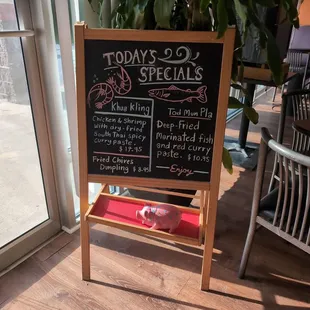 TODAY'S
SPECIALS
Khua Kling
Chicken & Shrimp
with dry-fried
South Thai spicy
curry paste.
$17.95
Fried Chives
Dumpling $8.95
Tod Mun Pla
Deep-Fried
Marinated Fish
and red curry
paste.
Enjoy